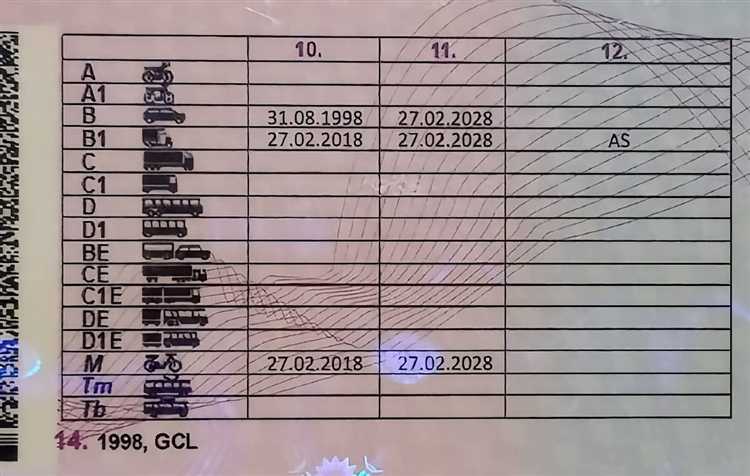 10. 11. 12.
A
A1
B 31.08.1998 27.02.2028
B1 27.02.2018 27.02.2028 AS
C
C1
D
D1
BE
CE
C1E
DE
D1E
M 27.02.2018 27.02.2028
Tm
Tb
14. 1998, GCL